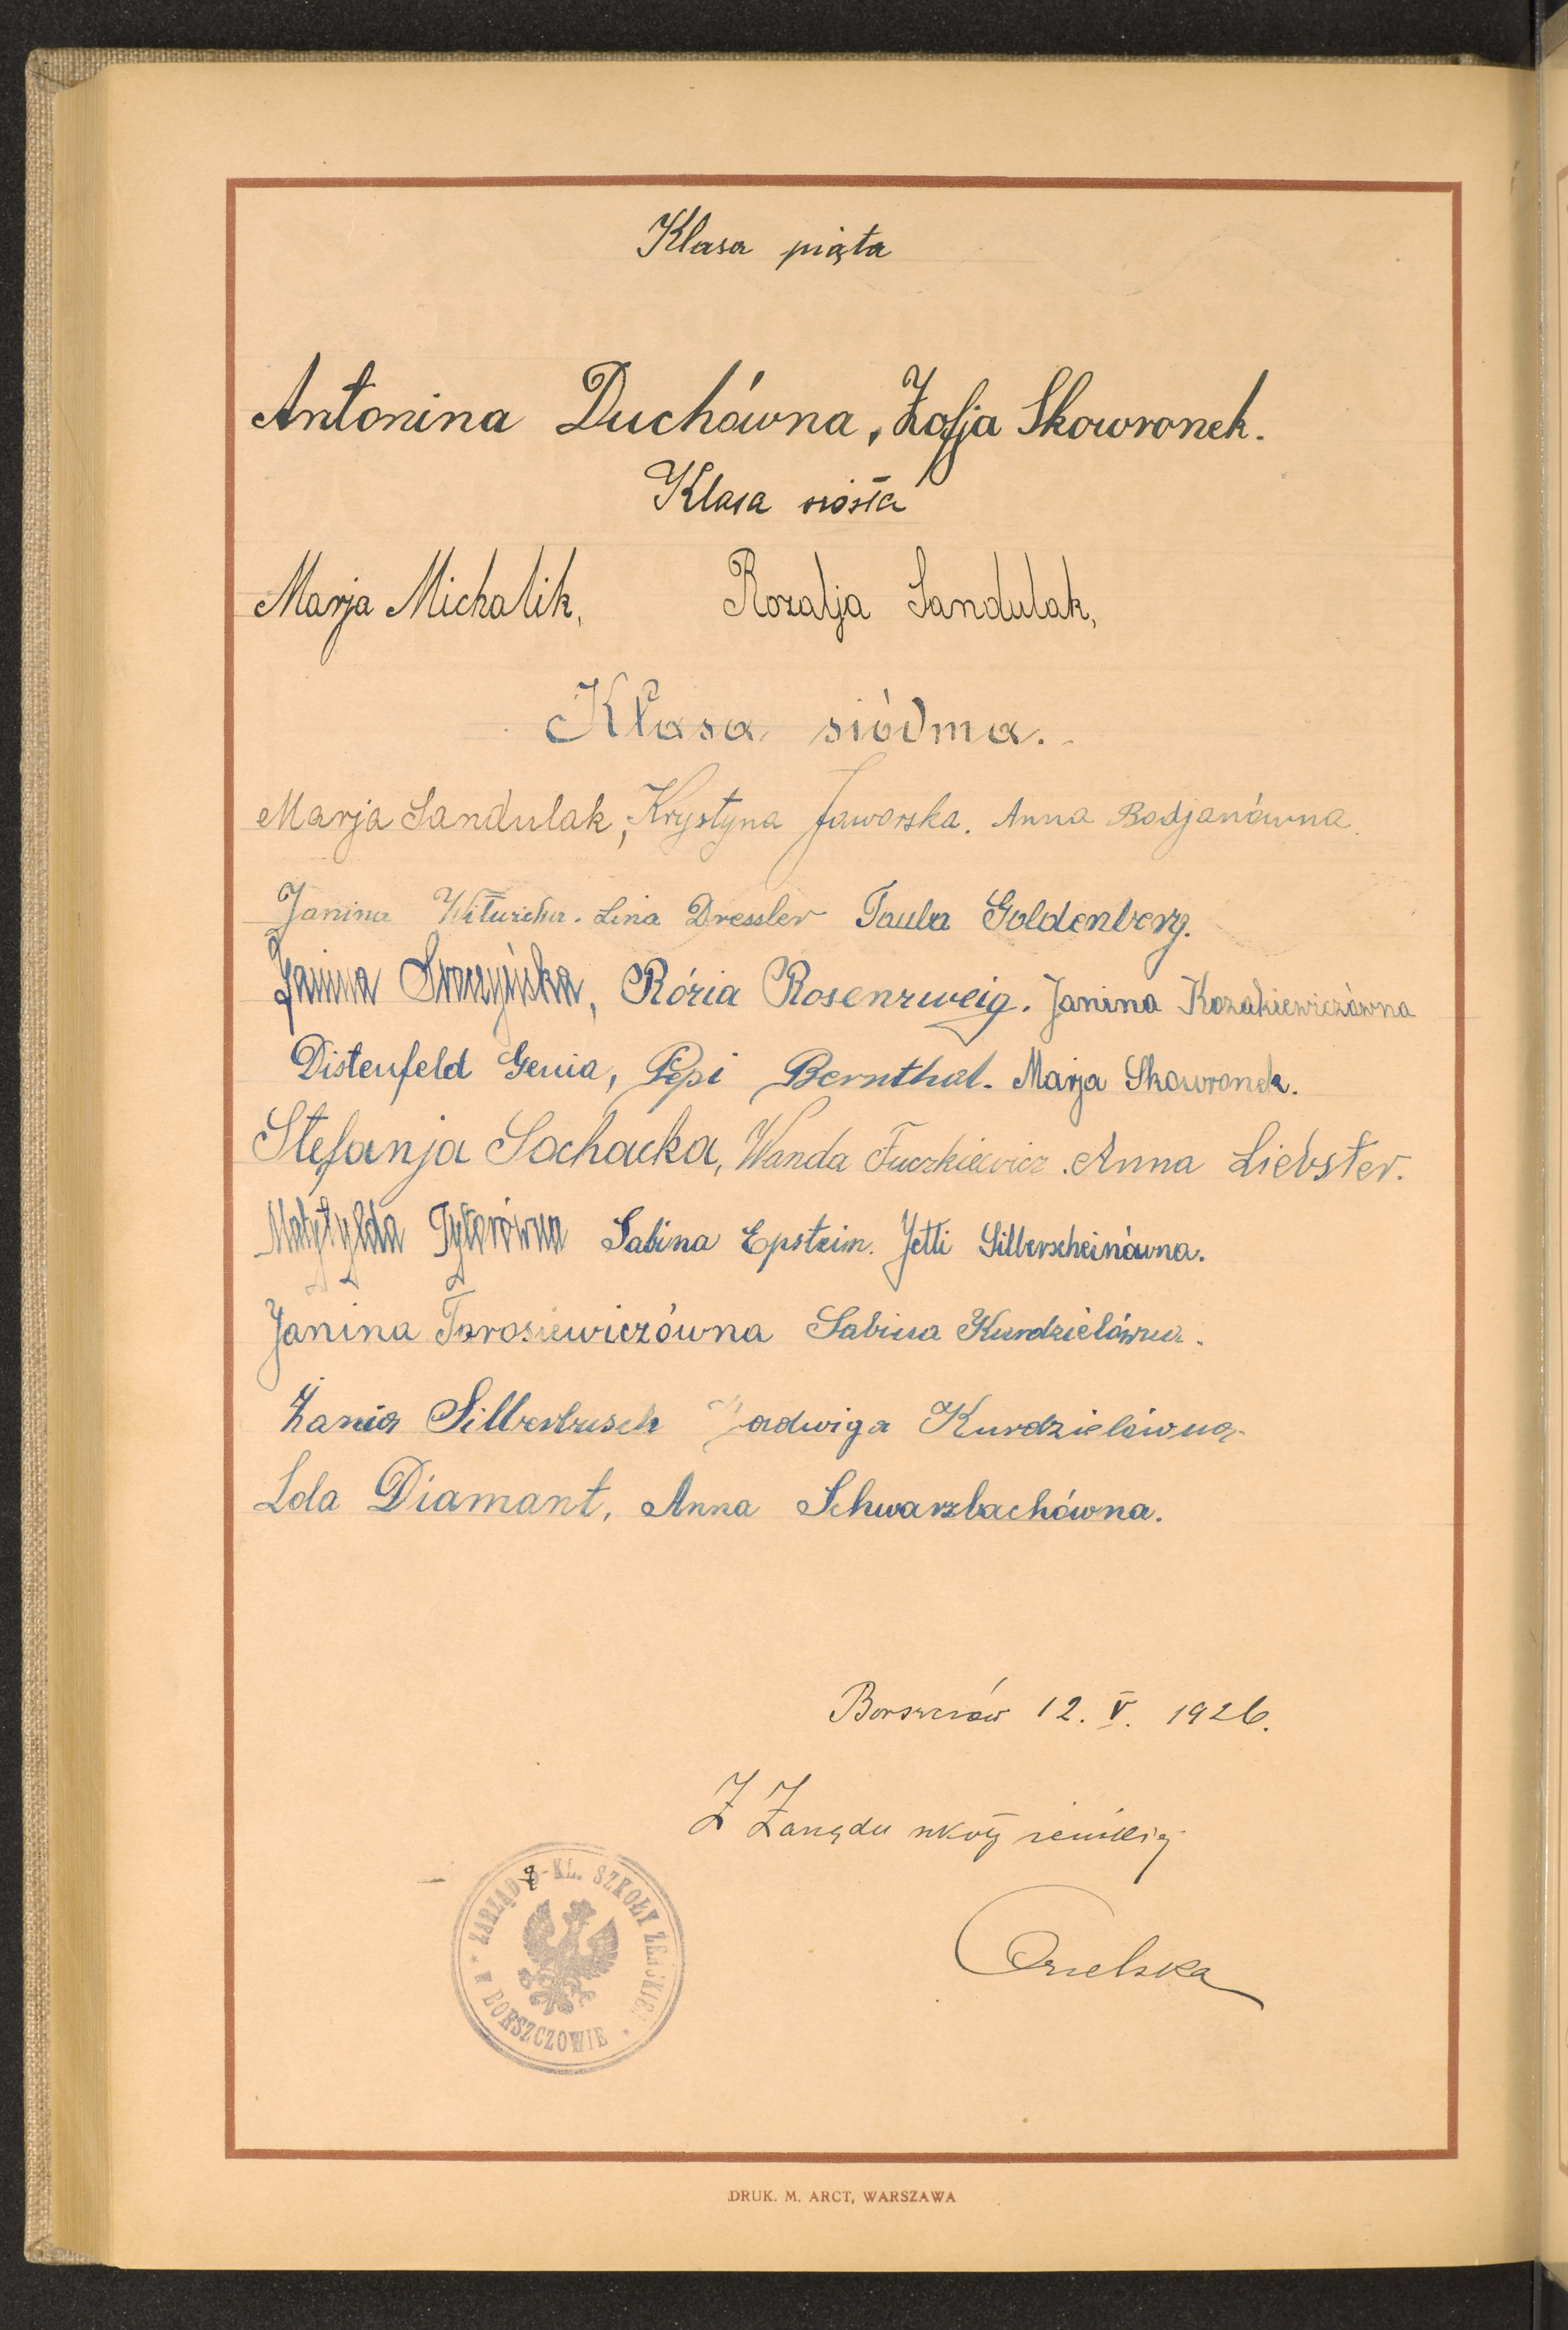 Klasa piąta
Antonina Duchówna, Zofja Skowronek.
Klasa szósta
Marja Michalik, Rozalja Sandulak,
Klasa siódma.
Marja Sandulak, Krystyna Jaworska. Anna Bodjanówna.
Janina Lina Dressler Paula Goldenberg.
Janina Rózia Rosenzweig. Janina Kozakiewiczówna
Distenfeld Genia, Pepi Bernthal. Marja Skowronek.
Stefanja Sochacka, Wanda Fuczkiewicz. Anna Liebster.
Matylda Sabina Epstein. Jetti Silberscheinówna.
Janina Tarosiewiczówna Sabina Kurdzielówna.
Żania Silberbusch Jadwiga Kurdzielówna
Lola Diamant, Anna Schwarzbachówna.
Borszczów 12. V. 1926.
Z Zarządu szkoły żeńskiej
ZARZĄD 7-KL. SZKOŁY ŻEŃSKIEJ * W BORSZCZOWIE *
DRUK. M. ARCT, WARSZAWA